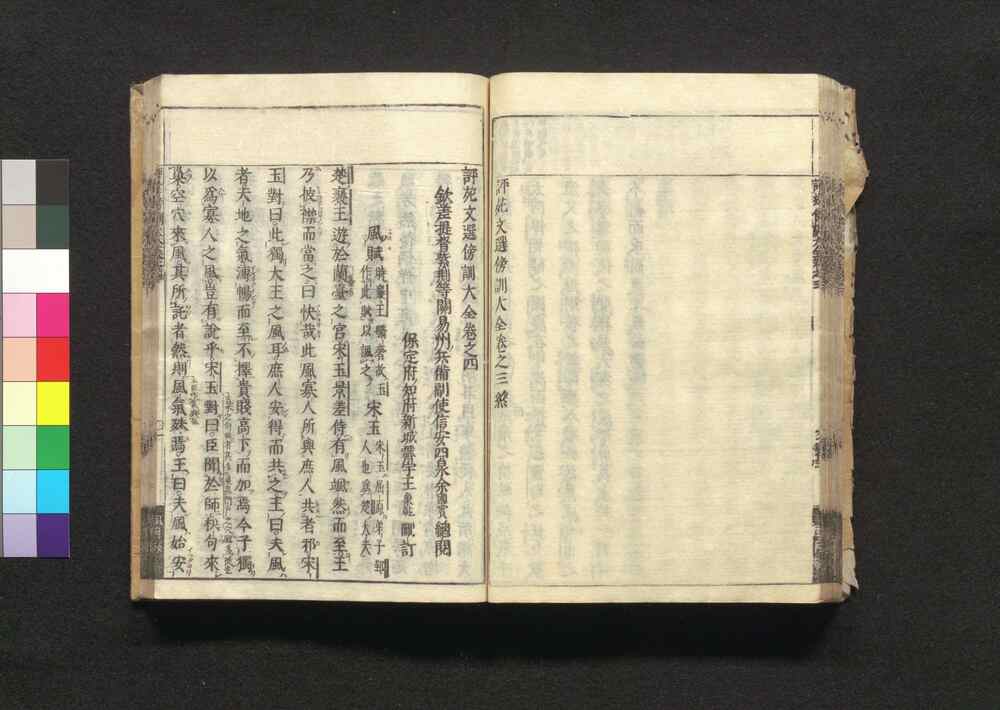 評苑文選傍訓大全卷之三終
評苑文選傍訓大全卷之四
欽差提督紫荊等關易州兵備副使信安四泉余國賓總閱
保定府知府新城霽宇王象乾刪訂
風賦時襄王驕奢故玉作此賦以諷之宋玉宋玉屈原弟子鄢人也爲楚大夫
楚襄王遊於蘭臺之宮宋玉景差侍有風颯然而至王
乃披襟而當之曰快哉此風寡人所與庶人共者邪宋
玉對曰此獨大王之風耳庶人安得而共之王曰夫風
者天地之氣溥暢而至不擇貴賤高下而加焉今子獨
以爲寡人之風豈有說乎宋玉對曰臣聞於師枳句來
巢空穴來風其所託者然則風氣殊焉王曰夫風始安